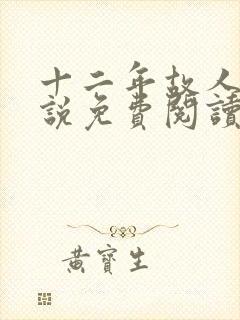 十二年故人
說免費閱讀
黃寶生